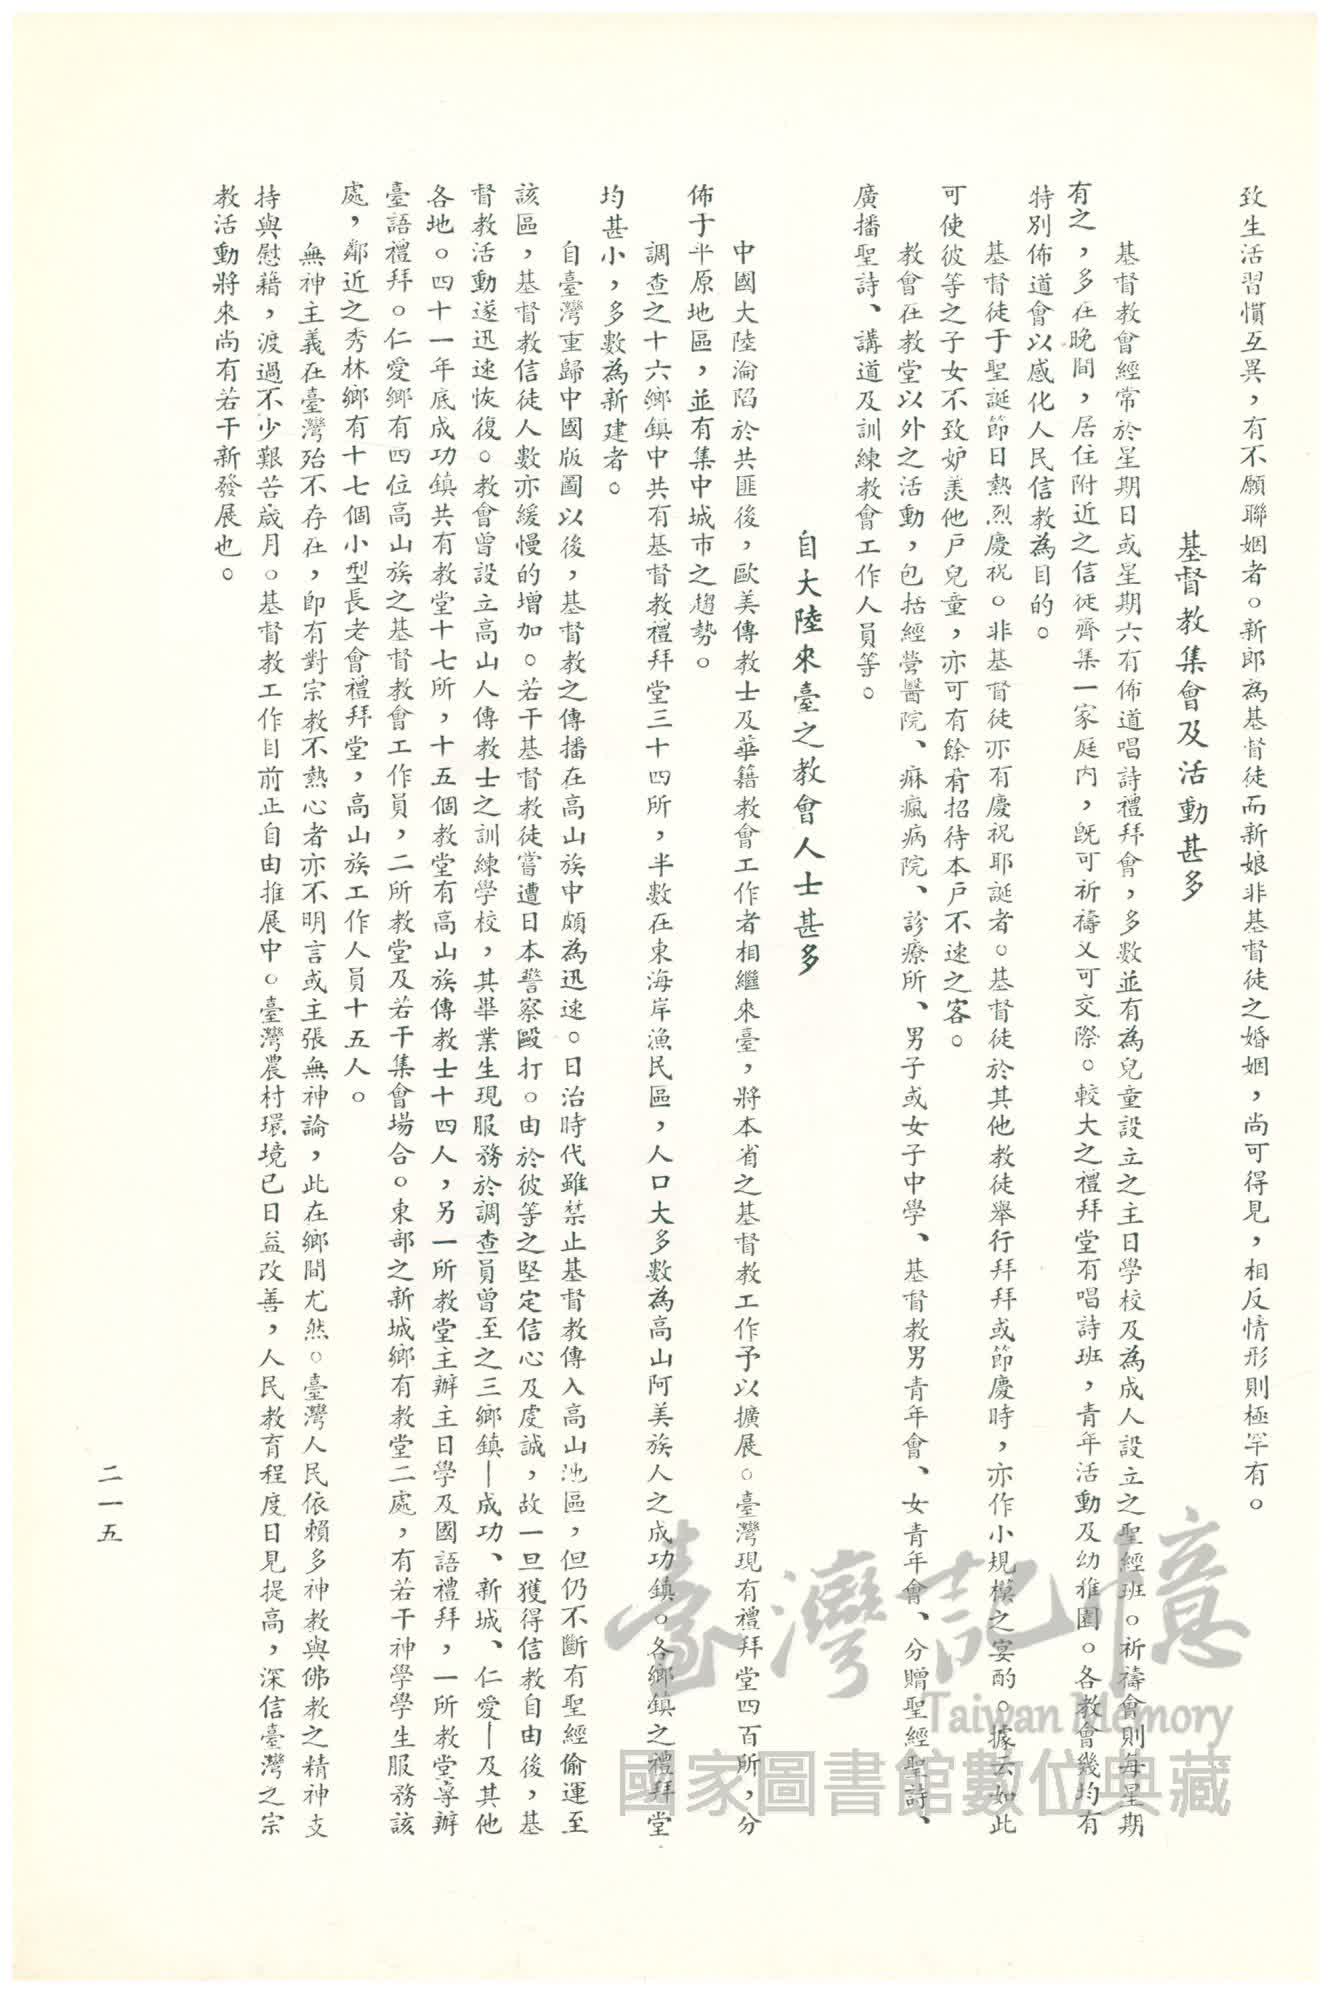 致生活習慣互異，有不願聯姻者。新郎為基督徒而新娘非基督徒之婚姻，尚可得見，相反情形則極罕有。
基督教集會及活動甚多
基督教會經常於星期日或星期六有佈道唱詩禮拜會，多數並有為兒童設立之主日學校及為成人設立之聖經班。祈禱會則每星期
有之，多在晚間，居住附近之信徒齊集一家庭內，既可祈禱又可交際。較大之禮拜堂有唱詩班，青年活動及幼稚園。各教會幾均有
特別佈道會以感化人民信教為目的。
基督徒于聖誕節日熱烈慶祝。非基督徒亦有慶祝耶誕者。基督徒於其他教徒舉行拜拜或節慶時，亦作小規模之宴酌。據云如此
可使彼等之子女不致妒羨他戶兒童，亦可有餘肴招待本戶不速之客。
教會在教堂以外之活動，包括經營醫院、痳瘋病院、診療所、男子或女子中學、基督教男青年會、女青年會、分贈聖經聖詩、
廣播聖詩、講道及訓練教會工作人員等。
自大陸來臺之教會人士甚多
中國大陸淪陷於共匪後，歐美傳教士及華籍教會工作者相繼來臺，將本省之基督教工作予以擴展。臺灣現有禮拜堂四百所，分
佈于平原地區，並有集中城市之趨勢。
調查之十六鄉鎮中共有基督教禮拜堂三十四所，半數在東海岸漁民區，人口大多數為高山阿美族人之成功鎮。各鄉鎮之禮拜堂
均甚小，多數為新建者。
自臺灣重歸中國版圖以後，基督教之傳播在高山族中頗為迅速。日治時代雖禁止基督教傳入高山地區，但仍不斷有聖經偷運至
該區，基督教信徒人數亦緩慢的增加。若干基督教徒嘗遭日本警察毆打。由於彼等之堅定信心及虔誠，故一旦獲得信教自由後，基
督教活動遂迅速恢復。教會曾設立高山人傳教士之訓練學校，其畢業生現服務於調查員曾至之三鄉鎮—成功、新城、仁愛—及其他
各地。四十一年底成功鎮共有教堂十七所，十五個教堂有高山族傳教士十四人，另一所教堂主辦主日學及國語禮拜，一所教堂專辦
臺語禮拜。仁愛鄉有四位高山族之基督教會工作員，二所教堂及若干集會場合。東部之新城鄉有教堂二處，有若干神學學生服務該
處，鄰近之秀林鄉有十七個小型長老會禮拜堂，高山族工作人員十五人。
無神主義在臺灣殆不存在，即有對宗教不熱心者亦不明言或主張無神論，此在鄉間尤然。臺灣人民依賴多神教與佛教之精神支
持與慰藉，渡過不少艱苦歲月。基督教工作目前正自由推展中。臺灣農村環境已日益改善，人民教育程度日見提高，深信臺灣之宗
教活動將來尚有若干新發展也。
二一五
臺灣記憶
Taiwan Memory
國家圖書館數位典藏